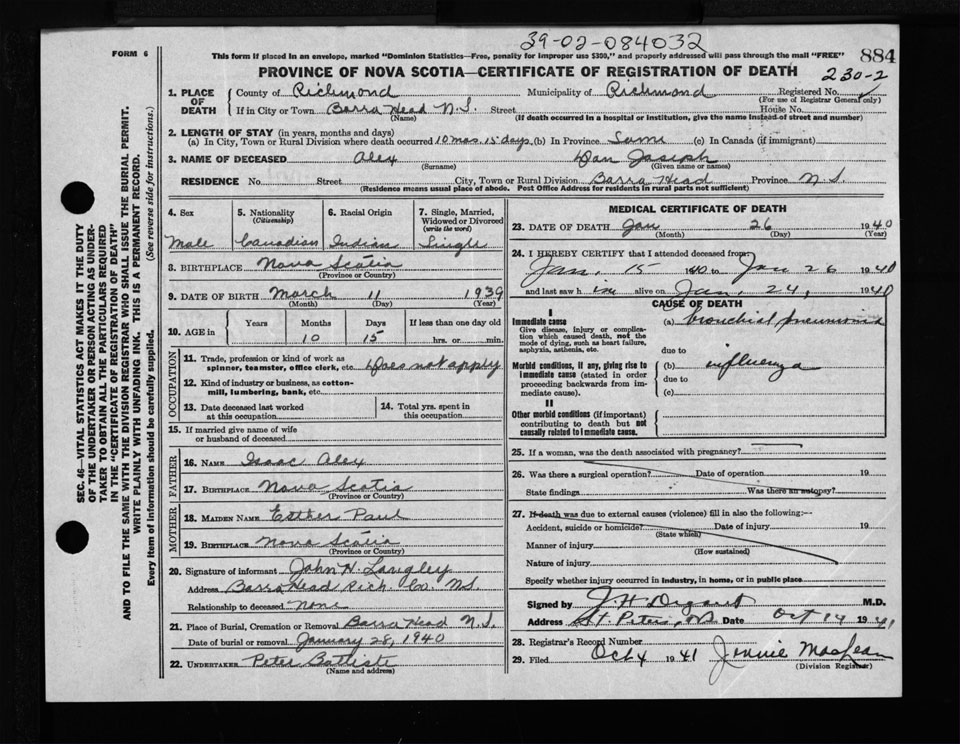 39-02-084032
FORM 6
This form if placed in an envelope, marked "Dominion Statistics—Free, penalty for improper use $300," and properly addressed will pass through the mail "FREE"
884
PROVINCE OF NOVA SCOTIA—CERTIFICATE OF REGISTRATION OF DEATH
230-2
1. PLACE OF DEATH
County of Richmond Municipality of Richmond Registered No.
(For use of Registrar General only)
If in City or Town Barra Head N.S. Street House No.
(Name) (If death occurred in a hospital or institution, give the name instead of street and number)
2. LENGTH OF STAY (in years, months and days)
(a) In City, Town or Rural Division where death occurred 10 mos. 15 days (b) In Province Same (c) In Canada (if immigrant)
3. NAME OF DECEASED Alex Dan Joseph
(Surname) (Given name or names)
RESIDENCE No. Street City, Town or Rural Division Barra Head Province N.S.
(Residence means usual place of abode. Post Office Address for residents in rural parts not sufficient)
4. Sex
Male
5. Nationality
(Citizenship)
Canadian
6. Racial Origin
Indian
7. Single, Married, Widowed or Divorced
(write the word)
Single
8. BIRTHPLACE Nova Scotia
(Province or Country)
9. DATE OF BIRTH March 11 1939
(Month) (Day) (Year)
10. AGE in
Years Months Days If less than one day old
10 15 hrs. or min.
OCCUPATION
11. Trade, profession or kind of work as
spinner, teamster, office clerk, etc. Does not apply
12. Kind of industry or business, as cotton-
mill, lumbering, bank, etc.
13. Date deceased last worked
at this occupation
14. Total yrs. spent in
this occupation
15. If married give name of wife
or husband of deceased
FATHER
16. NAME Isaac Alex
17. BIRTHPLACE Nova Scotia
(Province or Country)
MOTHER
18. MAIDEN NAME Esther Paul
19. BIRTHPLACE Nova Scotia
(Province or Country)
20. Signature of informant John H. Langley
Address Barra Head Rich. Co. N.S.
Relationship to deceased None
21. Place of Burial, Cremation or Removal Barra Head N.S.
Date of burial or removal January 28, 1940
22. UNDERTAKER Peter Battiste
(Name and address)
MEDICAL CERTIFICATE OF DEATH
23. DATE OF DEATH Jan 26 1940
(Month) (Day) (Year)
24. I HEREBY CERTIFY that I attended deceased from
Jan. 15 1940 to Jan 26 1940
and last saw him alive on Jan. 24, 1940
CAUSE OF DEATH
I
Immediate cause
Give disease, injury or complica-
tion which caused death, not the
mode of dying, such as heart failure,
asphyxia, asthenia, etc.
(a) bronchial pneumonia
due to
Morbid conditions, if any, giving rise to
immediate cause (stated in order
proceeding backwards from im-
mediate cause).
(b) influenza
due to
(c)
II
Other morbid conditions (if important)
contributing to death but not
causally related to immediate cause.
25. If a woman, was the death associated with pregnancy?
26. Was there a surgical operation? Date of operation 19
State findings Was there an autopsy?
27. If death was due to external causes (violence) fill in also the following:—
Accident, suicide or homicide? Date of injury 19
(State which)
Manner of injury
(How sustained)
Nature of injury
Specify whether injury occurred in industry, in home, or in public place
Signed by J. H. M.D.
Address St. Peters, N.S. Date Oct 14 1941
28. Registrar's Record Number
29. Filed Oct 4 1941 Jennie MacLean
(Division Registrar)
SEC. 46—VITAL STATISTICS ACT MAKES IT THE DUTY
OF THE UNDERTAKER OR PERSON ACTING AS UNDER-
TAKER TO OBTAIN ALL THE PARTICULARS REQUIRED
IN THE "CERTIFICATE OF REGISTRATION OF DEATH"
AND TO FILE THE SAME WITH THE DIVISION REGISTRAR WHO SHALL ISSUE THE BURIAL PERMIT.
WRITE PLAINLY WITH UNFADING INK. THIS IS A PERMANENT RECORD.
Every item of information should be carefully supplied. (See reverse side for instructions.)